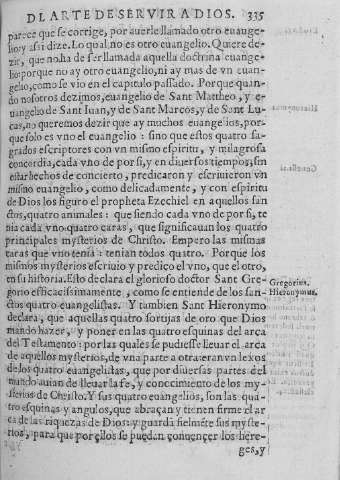 DL ARTE DE SERVIR A DIOS. 335
parece que se corrige, por auerle llamado otro euange-
lio: y assi dize. Lo qual no es otro euangelio. Quiere de-
zir, que no ha de ser llamada aquella doctrina euange-
lio: porque no ay otro euangelio, ni ay mas de vn euan-
gelio, como se vio en el capitulo passado. Porque quan-
do nosotros dezimos, euangelio de Sant Mattheo, y e-
uangelio de Sant Iuan, y de Sant Marcos, y de Sant Lu-
cas, no queremos dezir que ay muchos euangelios, por-
que solo es vno el euangelio: sino que estos quatro sa-
grados escriptores con vn mismo espiritu, y milagrosa
concordia, cada vno de por si, y en diuersos tiempos, sin
estar hechos de concierto, predicaron y escriuieron vn
mismo euangelio, como delicadamente, y con espiritu
de Dios los figuro el propheta Ezechiel en aquellos san
ctos, quatro animales: que siendo cada vno de por si, te
nia cada vno quatro caras, que significauan los quatro
principales mysterios de Christo. Empero las mismas
caras que vno tenia: tenian todos quatro. Porque los
mismos mysterios escriuio y predico el vno, que el otro,
en su historia. Esto declara el glorioso doctor Sant Gre-
gorio efficacissimamente, como se entiende de los san-
ctos quatro euangelistas. Y tambien Sant Hieronymo
declara, que aquellas quatro sortijas de oro que Dios
mando hazer, y poner en las quatro esquinas del arca
del Testamento: por las quales se pudiesse lleuar el arca
de aquellos mysterios, de vna parte a otra: eran vn lexos
de los quatro euangelistas, que por diuersas partes del
mundo auian de lleuar la fe, y conocimiento de los my-
sterios de Christo. Y sus quatro euangelios, son las qua-
tro esquinas y angulos, que abraçan y tienen firme el ar
ca de las riquezas de Dios: y guarda fielmẽte sus myste-
rios, para que por ellos se puedan conuencer los here-
ges, y
Gregorius.
Hieronymus.